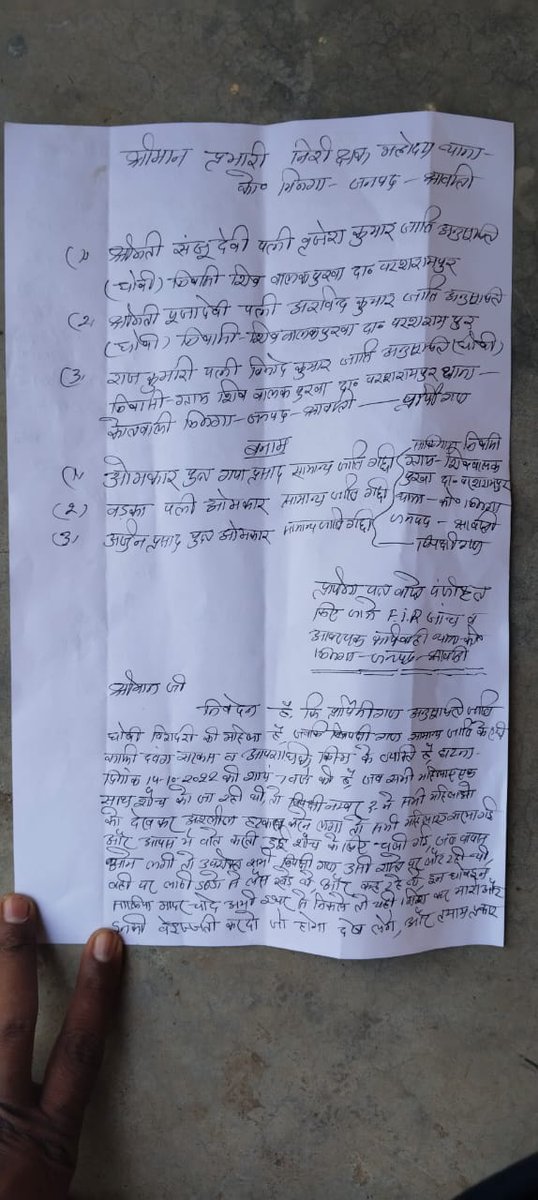 श्रीमान प्रभारी निरीक्षक महोदय थाना-
को० भिनगा- जनपद- श्रावस्ती
(1) श्रीमती संजू देवी पत्नी बृजेश कुमार जाति अनुसूचित
(धोबी) निवासी शिव बालकपुरवा दा० परशरामपुर
(2) श्रीमती पूजादेवी पत्नी अरविन्द कुमार जाति अनुसूचित
(धोबी) निवासी-शिव बालकपुरवा दा० परशरामपुर
(3) राजकुमारी पत्नी विनोद कुमार जाति अनुसूचित (धोबी)
निवासी-ग्राम शिव बालक पुरवा दा० परशरामपुर थाना-
कोतवाली भिनगा-जनपद-श्रावस्ती —
बनाम
(1) ओमकार पुत्र प्रसाद सामान्य जाति
(2) पत्नी ओमकार सामान्य जाति
(3) अर्जुन प्रसाद पुत्र ओमकार सामान्य जाति
निवासी
ग्राम-शिवबालक
पुरवा दा० परशरामपुर
थाना-को० भिनगा
जनपद-श्रावस्ती
विपक्षीगण
पत्र
किए जाने F.I.R जांच व
आवश्यक कार्यवाही थाना-को०
भिनगा-जनपद-श्रावस्ती
श्रीमान जी
निवेदन है कि अनुसूचित जाति
धोबी बिरादरी की महिला है जबकि विपक्षी गण सामान्य जाति के
काफी दबंग सरकस व आपराधिक किस्म के व्यक्ति है घटना-
दिनांक 14-10-2022 की शाम 7 बजे की है, जब सभी महिलाएं एक
साथ शौच को जा रही थी, तो विपक्षी नम्बर ने सभी महिलाओं
को देखकर अश्लील हरकत करने लगा तो सभी महिलाएं
और आपस में बात करती हुई शौच के लिए चली गई जब वापस
आने लगी तो उपरोक्त सभी विपक्षी गण उसी रास्ते पर
वही पर लाठी डंडा से लैस खड़े थे और कह रहे थे इन
अभी इधर से निकले तो यही गिरा कर मारो और
इनकी बेइज्जती कर दो जो होगा देख लेंगे, और तमाम प्रकार